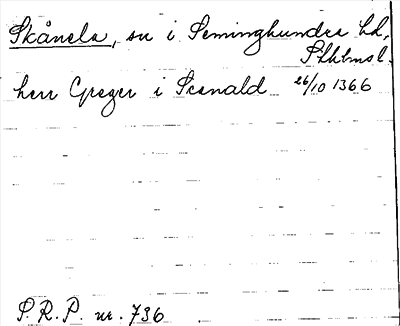 Skånela, sn i Seminghundra hd,
Sthlms l.
herr Greger i Scanald 26/10 1366
P.R.P. nr. 736